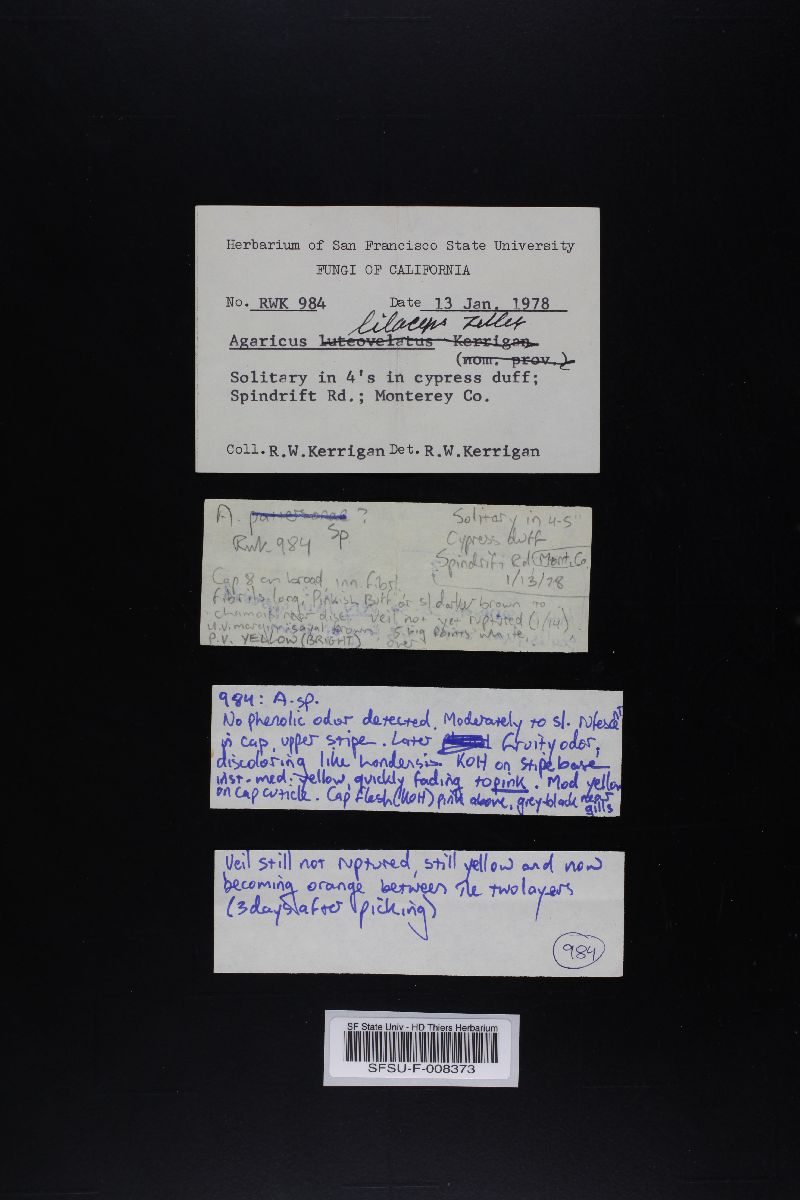 Herbarium of San Francisco State University
FUNGI OF CALIFORNIA
No. RWK 984 Date 13 Jan. 1978
lilaceps Zeller
Agaricus luteovelatus Kerrigan
(nom. prov.)
Solitary in 4's in cypress duff;
Spindrift Rd.; Monterey Co.
Coll. R.W.Kerrigan Det. R.W.Kerrigan
A. pattersonae ?
Sp
RWK 984
Solitary in 4-5"
Cypress duff
Spindrift Rd. Mont. Co.
1/13/78
Cap 8 cm broad, inn. fibr.
fibrils long; Pinkish Buff or sl darker brown to
near disc. Veil not yet ruptured (1/14)
U.V. margin brown, 5 big points white,
P.V. YELLOW (BRIGHT) over
984: A. sp.
No phenolic odor detected. Moderately to sl. rufescent
in cap, upper stipe. Later fruity odor,
discoloring like hondensis. KOH on stipe base
inst. med. yellow, quickly fading to pink. Mod yellow
on cap cuticle. Cap flesh (KOH) pink above, grey-black near
gills
Veil still not ruptured, still yellow and now
becoming orange between the two layers
(3 days after picking)
984
SF State Univ - HD Thiers Herbarium
SFSU-F-008373